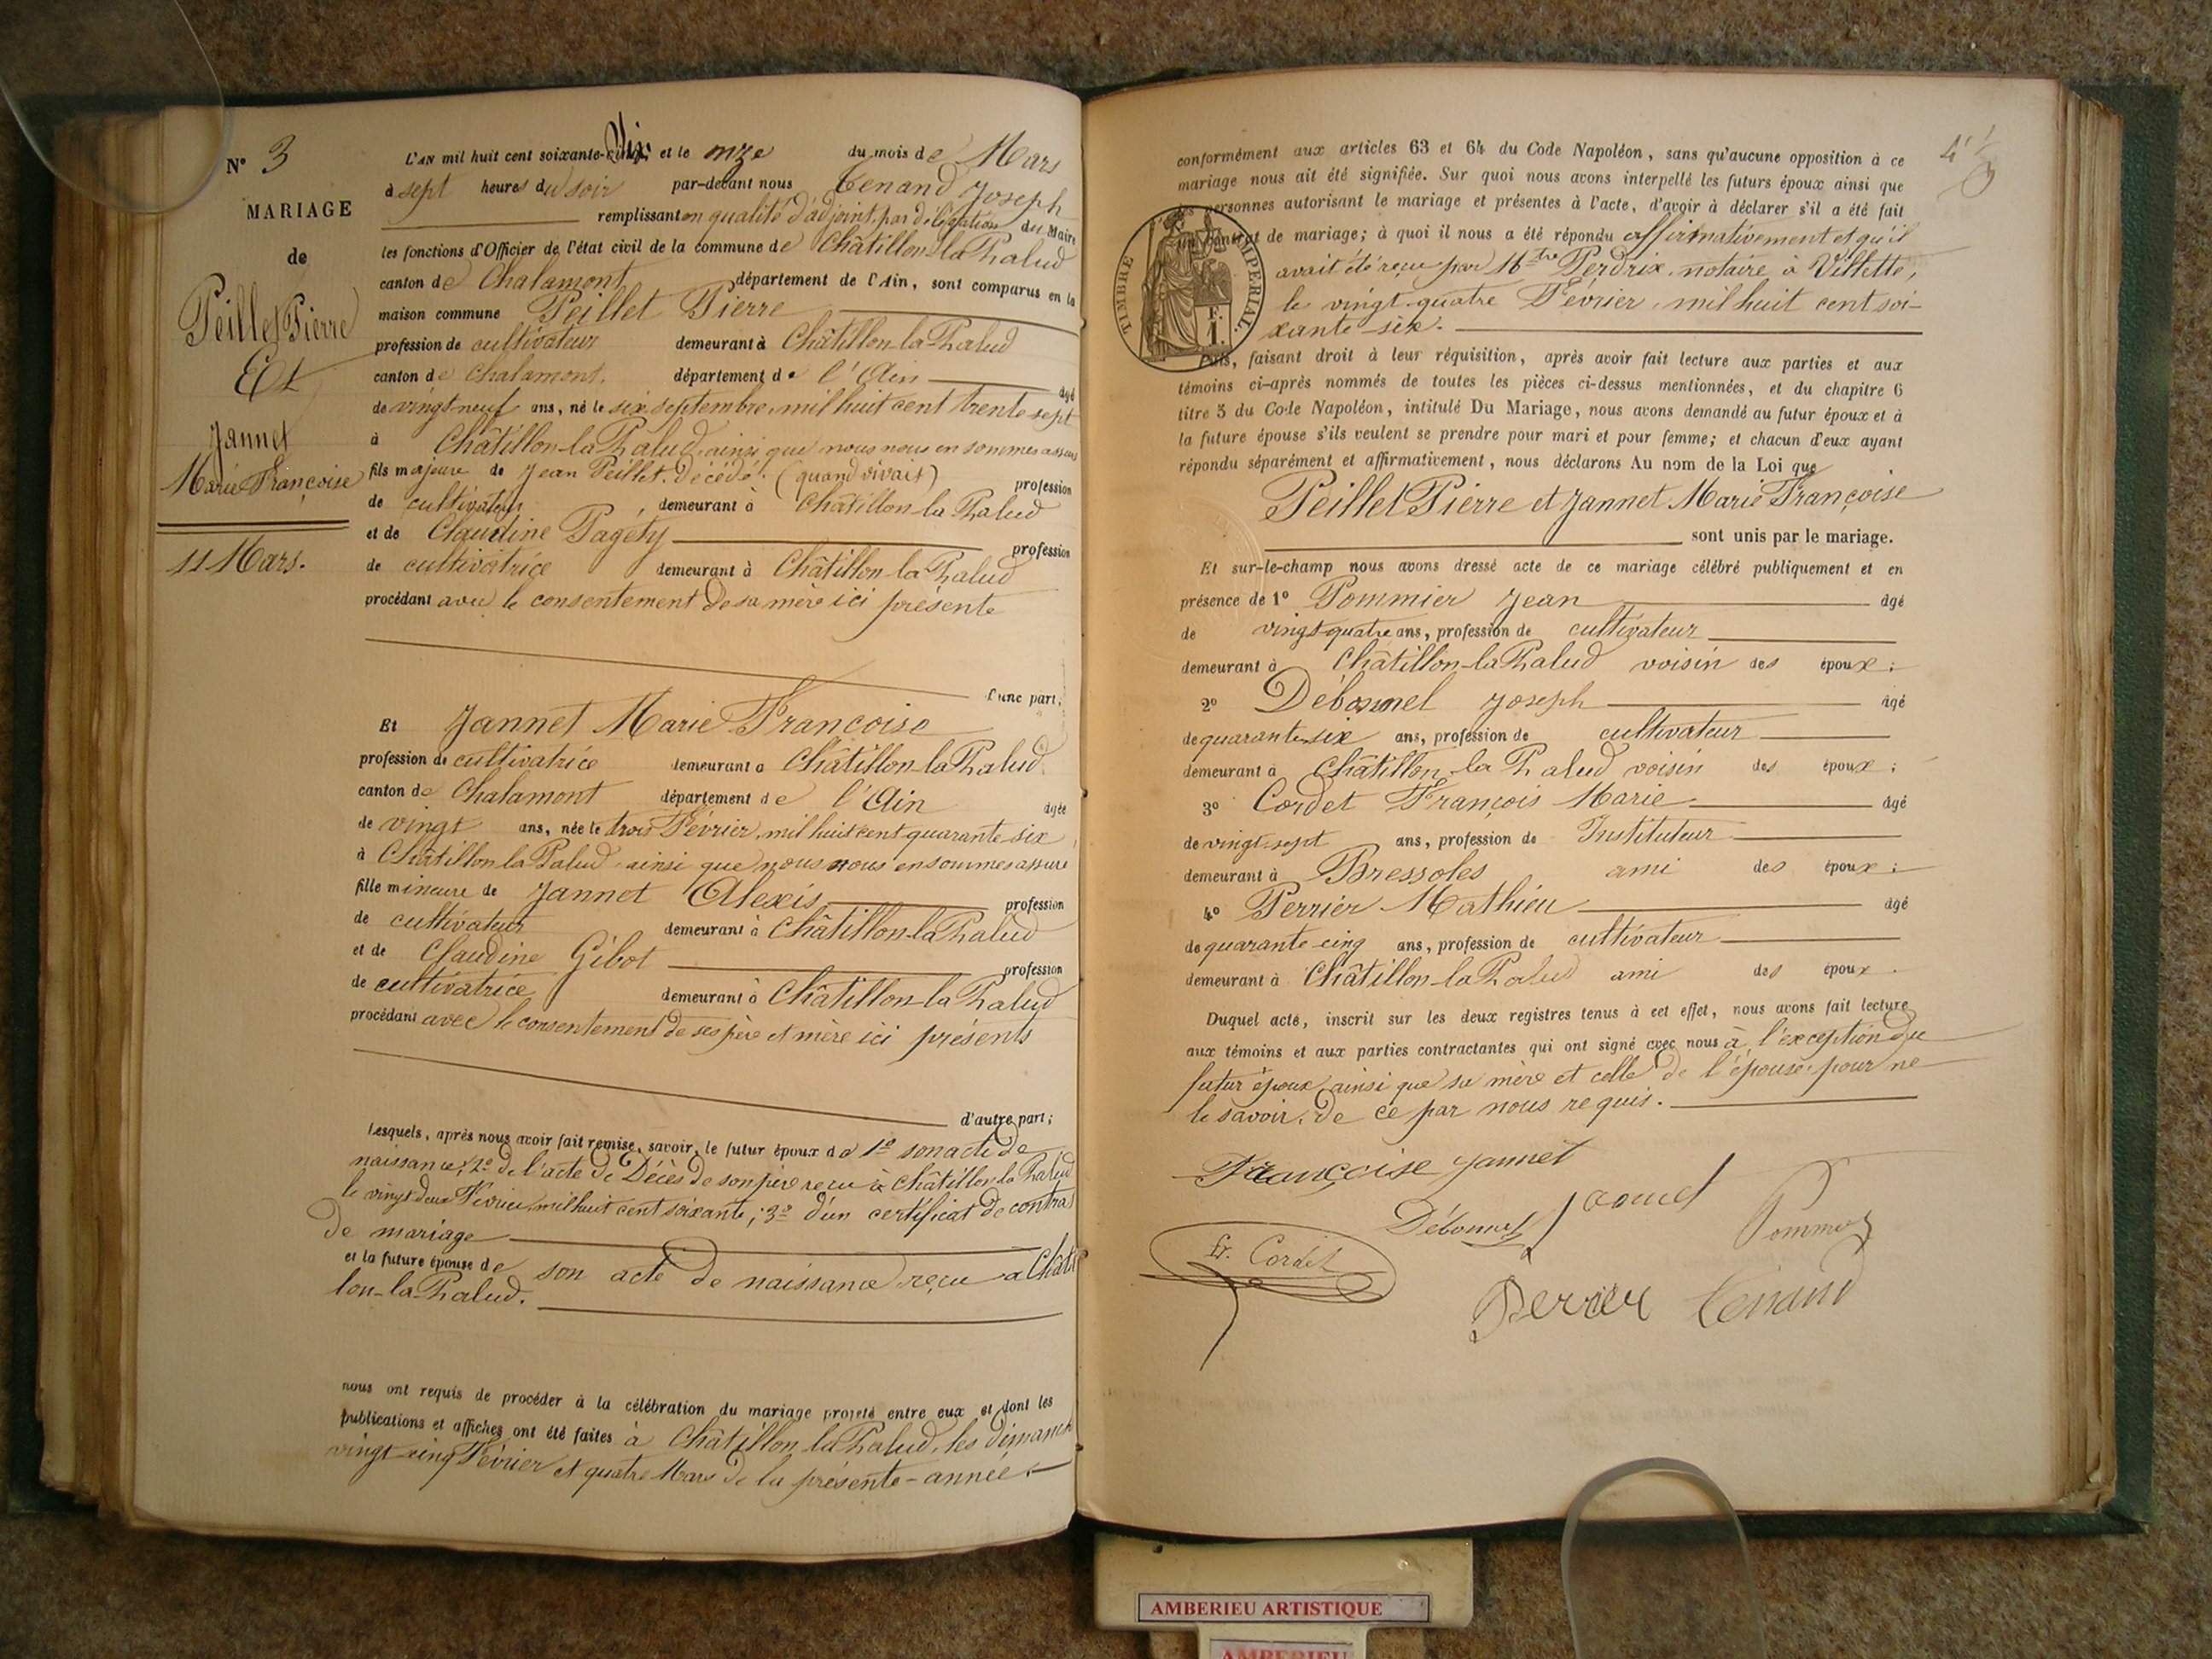 N° 3
MARIAGE
de
Peillet Pierre
Et
Jannet
Marie Françoise
11 Mars.
L'AN mil huit cent soixante-six et le onze du mois de Mars
à sept heures du soir par-devant nous Tenand Joseph
remplissant en qualité d'adjoint, par délégation du Maire
les fonctions d'Officier de l'état civil de la commune de Châtillon-la-Palud
canton de Chalamont département de l'Ain, sont comparus en la
maison commune Peillet Pierre
profession de cultivateur demeurant à Châtillon-la-Palud
canton de Chalamont. département de l'Ain âgé
de vingt neuf ans, né le six septembre, mil huit cent trente sept
à Châtillon-la-Palud, ainsi que nous nous en sommes assuré
fils majeure de Jean Peillet. Décédé. (quand vivait) profession
de cultivateur demeurant à Châtillon-la-Palud
et de Claudine Pagéty profession
de cultivatrice demeurant à Châtillon-la-Palud
procédant avec le consentement de sa mère ici présente
d'une part;
Et Jannet Marie Françoise
profession de cultivatrice demeurant à Châtillon-la-Palud.
canton de Chalamont département de l'Ain âgée
de vingt ans, née le trois Février, mil huit cent quarante-six
à Châtillon-la-Palud, ainsi que nous nous en sommes assuré
fille mineure de Jannet Alexis profession
de cultivateur demeurant à Châtillon-la-Palud
et de Claudine Gibot profession
de cultivatrice demeurant à Châtillon-la-Palud
procédant avec le consentement de ses père et mère ici présents
d'autre part;
Lesquels, après nous avoir fait remise, savoir, le futur époux de 1° son acte de
naissance; 2° de l'acte de Décès de son père reçu à Châtillon-la-Palud
le vingt deux Février, mil huit cent soixante; 3° d'un certificat de contrat
de mariage
et la future épouse de son acte de naissance reçu à Châtil
lon-la-Palud.
nous ont requis de procéder à la célébration du mariage projeté entre eux et dont les
publications et affiches ont été faites à Châtillon la Palud, les dimanch
vingt-cinq Février et quatre Mars de la présente-année
conformément aux articles 63 et 64 du Code Napoléon, sans qu'aucune opposition à ce
mariage nous ait été signifiée. Sur quoi nous avons interpellé les futurs époux ainsi que
les personnes autorisant le mariage et présentes à l'acte, d'avoir à déclarer s'il a été fait
un contrat de mariage; à quoi il nous a été répondu affirmativement et qu'il
avait été reçu par Mtre Perdrix, notaire à Villette,
le vingt-quatre Février, mil huit cent soi-
xante-six.
TIMBRE IMPERIAL.
F.
1.
Puis, faisant droit à leur réquisition, après avoir fait lecture aux parties et aux
témoins ci-après nommés de toutes les pièces ci-dessus mentionnées, et du chapitre 6
titre 5 du Code Napoléon, intitulé Du Mariage, nous avons demandé au futur époux et à
la future épouse s'ils veulent se prendre pour mari et pour femme; et chacun d'eux ayant
répondu séparément et affirmativement, nous déclarons Au nom de la Loi que
Peillet Pierre et Jannet Marie Françoise
sont unis par le mariage.
Et sur-le-champ nous avons dressé acte de ce mariage célébré publiquement et en
présence de 1° Pommier Jean âgé
de vingt-quatre ans, profession de cultivateur
demeurant à Châtillon-la-Palud voisin des époux;
2° Débonnel Joseph âgé
de quarante-six ans, profession de cultivateur
demeurant à Châtillon la Palud voisin des époux;
3° Cordet François Marie âgé
de vingt-sept ans, profession de Instituteur
demeurant à Bressoles ami des époux;
4° Perrier Mathieu âgé
de quarante-cinq ans, profession de cultivateur
demeurant à Châtillon-la-Palud ami des époux.
Duquel acte, inscrit sur les deux registres tenus à cet effet, nous avons fait lecture
aux témoins et aux parties contractantes qui ont signé avec nous à l'exception du
futur époux, ainsi que sa mère et celle de l'épouse, pour ne
le savoir, de ce par nous requis.
Françoise Jannet
Débonnel Janet Pommier
fr. Cordet
Perrier Tenand
AMBERIEU ARTISTIQUE
AMBERIEU